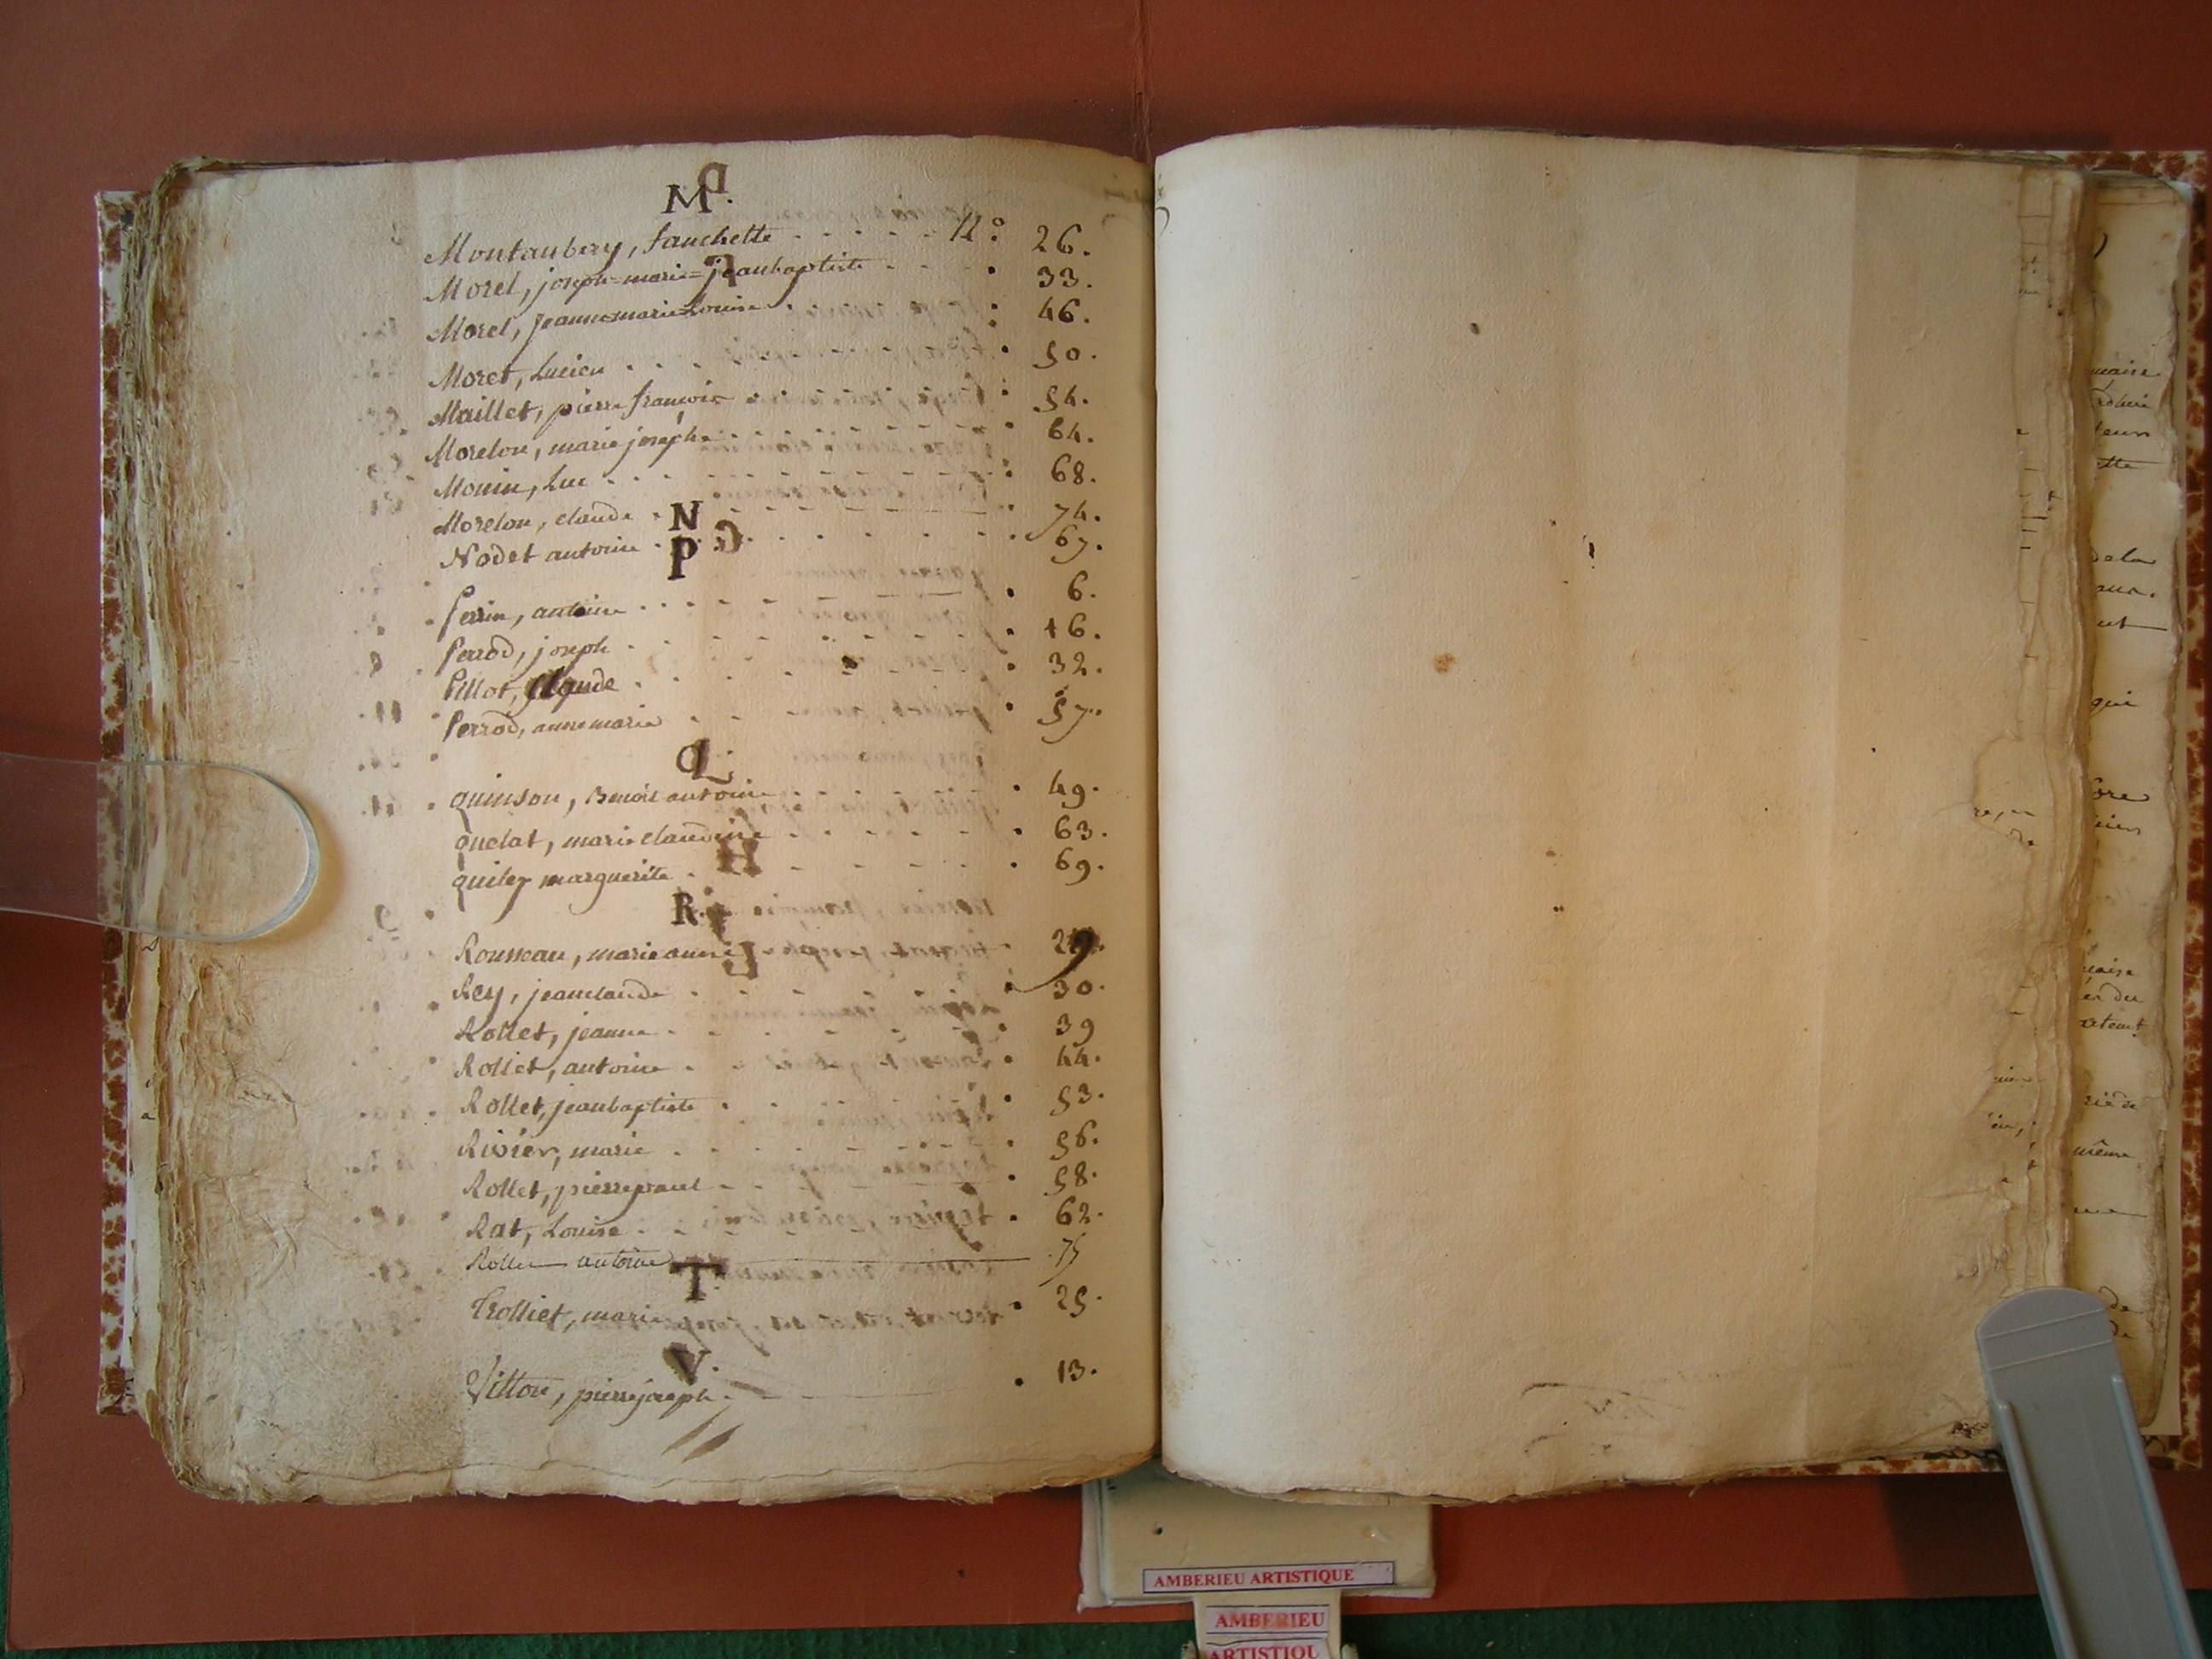 M.
Montaubery, fanchette . . . . . N.º 26.
Morel, joseph=marie=jeanbaptiste . . . . 33.
Morel, jeanne=marie=Louise . . 46.
Morel, Lucien . . . . 50.
Maillet, pierre françois . . . 54.
Morelon, marie josephe . . . . 64.
Monin, Luc . . . . 68.
Morelon, claude . . . . 74.
N
Nodet antoine . . . . 67.
P
Perrin, antoine . . . . 6.
Perrod, joseph . . . . 16.
Pillot, Claude . . . . 32.
Perrod, anne marie . . . . 57.
Q.
quinson, Benoît antoine . . . . 49.
quelat, marie claudine . . . . 63.
marguerite . . . . 69.
R.
Rousseau, marie anne 29.
Rey, jean claude . . . . 30.
Rollet, jeanne . . . . 39
Rollet, antoine . . . . 44.
Rollet, jeanbaptiste . . . . 53.
Rivier, marie . . . . 56.
Rollet, pierre paul . . . . 58.
Rat, Louise . . . . 62.
Rollet antoine 75
T
Trolliet, marie . 25.
V.
Vitton, pierre joseph . . 13.
maire
teurs
ette
dela
qui
même
AMBERIEU ARTISTIQUE
AMBERIEU
ARTISTIQU